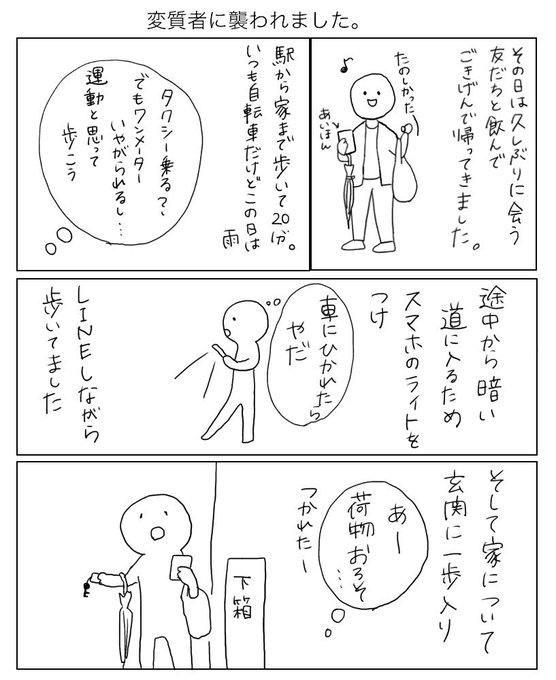 変質者に襲われました。
その日は久しぶりに会う
友だちと飲んで
ごきげんで帰ってきました。
たのしかったー
あいほん
駅から家まで歩いて20分。
いつも自転車だけどこの日は
雨
タクシー乗る?
でもワンメーター
いやがられるし…
運動と思って
歩こう
途中から暗い
道に入るため
スマホのライトを
つけ
車にひかれたら
やだ
LINEしながら
歩いてました
そして家について
玄関に一歩入り
あー
荷物おろそ…
つかれたー
下箱